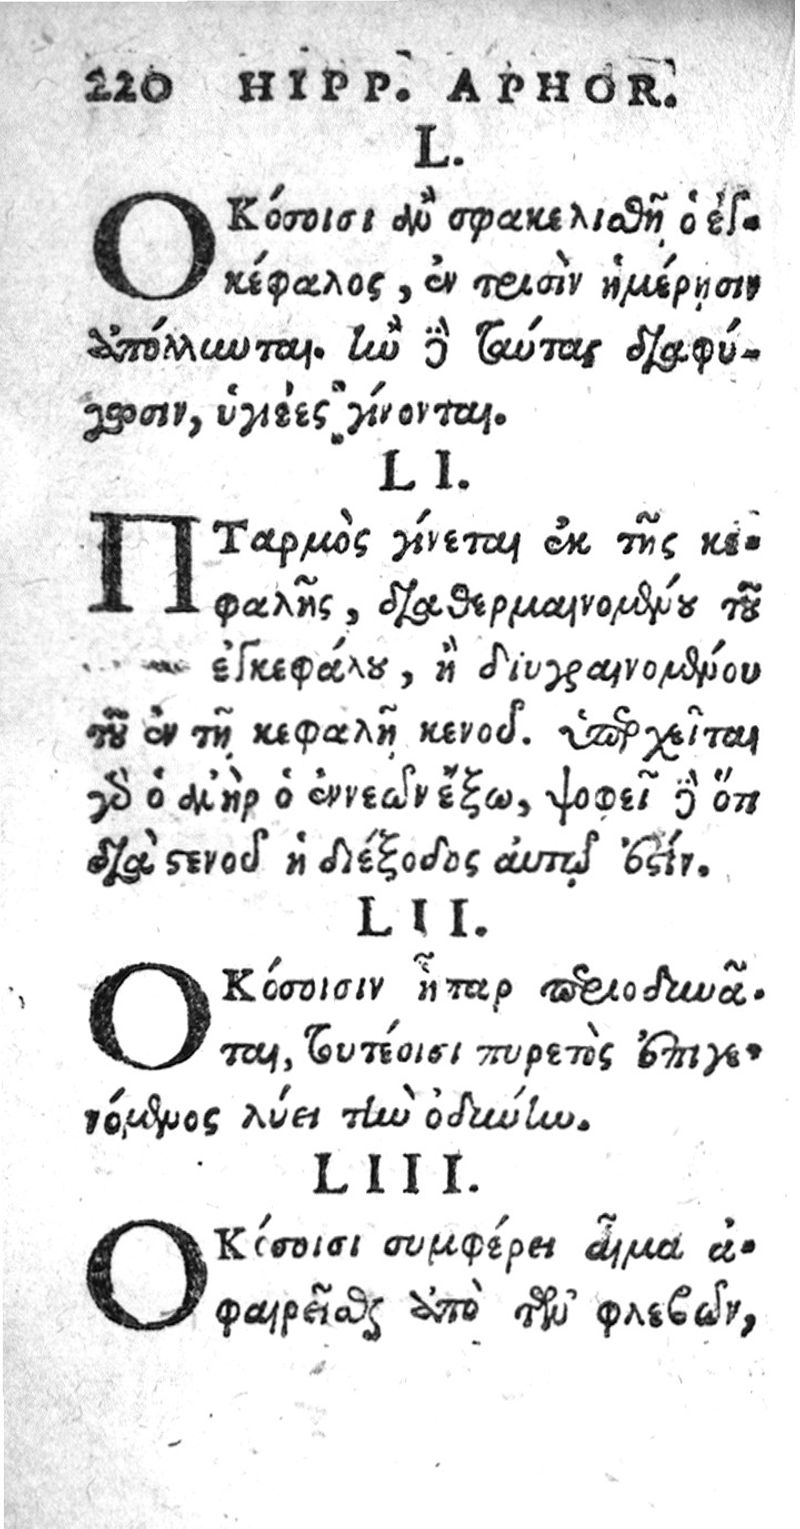 220 HIPP. APHOR.
L.
ΟΚόσοισι ἂν σφακελισθῇ ὁ ἐγ-
κέφαλος, ἐν τρισὶν ἡμέρῃσιν
ἀπόλλυνται. ἢν δὲ ταύτας διαφύ-
γωσιν, ὑγιέες γίνονται.
LI.
ΠΤαρμὸς γίνεται ἐκ τῆς κε-
φαλῆς, διαθερμαινομένου τοῦ
ἐγκεφάλου, ἢ διϋγραινομένου
τοῦ ἐν τῇ κεφαλῇ κενοῦ. ὑπερχεῖται
γὰρ ὁ ἀὴρ ὁ ἐννεὼν ἔξω, ψοφεῖ δὲ ὅτι
διὰ στενοῦ ἡ διέξοδος αὐτοῦ ἐστίν.
LII.
ΟΚόσοισιν ἧπαρ περιοδυνᾶ-
ται, τουτέοισι πυρετὸς ἐπιγε-
νόμενος λύει τὴν ὀδύνην.
LIII.
ΟΚόσοισι συμφέρει αἷμα ἀ-
φαιρεῖσθαι ἀπὸ τῶν φλεβῶν,